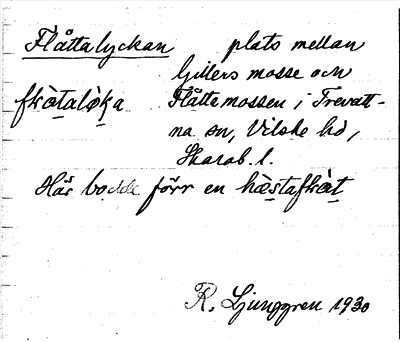 Flåttalyckan plats mellan
Gillers mosse och
flåtaløka Flåttemossen i Trevatt-
na sn, Vilske hd,
Skarab. l.
Här bodde förr en hæstaflåt
R. Ljunggren 1930